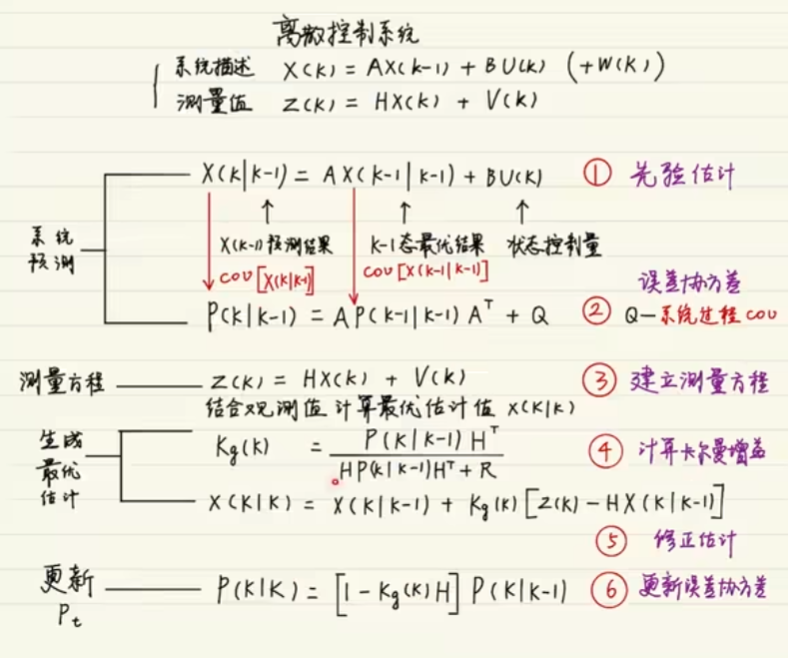 离散控制系统
系统描述 X(k) = AX(k-1) + BU(k) (+W(k))
测量值 Z(k) = HX(k) + V(k)
X(k|k-1) = AX(k-1|k-1) + BU(k) ① 先验估计
系统预测
X(k-1)预测结果 k-1态最优结果 状态控制量
cov[X(k|k-1)] cov[X(k-1|k-1)]
误差协方差
P(k|k-1) = AP(k-1|k-1)Aᵀ + Q ② Q—系统过程cov
测量方程 Z(k) = HX(k) + V(k) ③ 建立测量方程
结合观测值计算最优估计值 X(k|k)
生成最优估计
Kg(k) = P(k|k-1)Hᵀ / HP(k|k-1)Hᵀ + R ④ 计算卡尔曼增益
X(k|k) = X(k|k-1) + Kg(k)[Z(k) - HX(k|k-1)]
⑤ 修正估计
更新 Pt P(k|k) = [1 - Kg(k)H] P(k|k-1) ⑥ 更新误差协方差